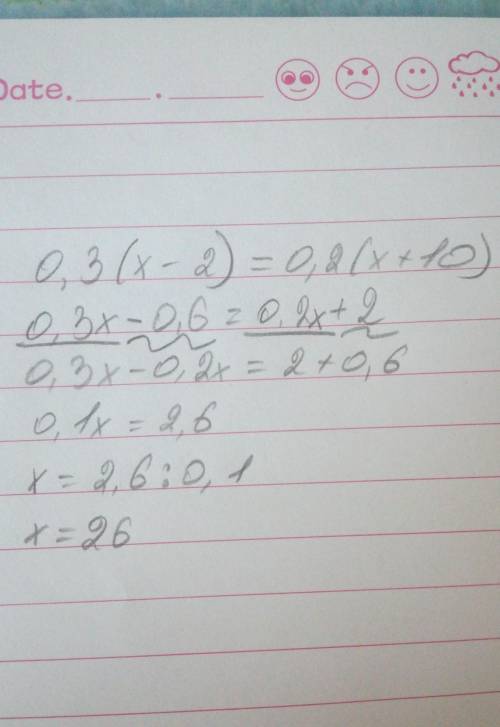 Date.____.____
0,3(x-2)=0,2(x+10)
0,3x-0,6=0,2x+2
0,3x-0,2x=2+0,6
0,1x=2,6
x=2,6:0,1
x=26